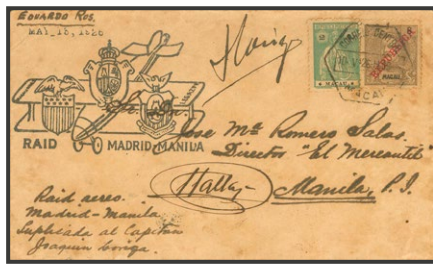 EDUARDO ROS.
MAY, 13, 1926
MACAU
REPUBLICA
MACAU
RAID MADRID-MANILA
Sr. Dn.
Jose Mª Romero Salas.
Director "El Mercantil"
Manila, P. I.
Raid aereo.
Madrid-Manila
Suplicada al Capitan
Joaquin Loriga.